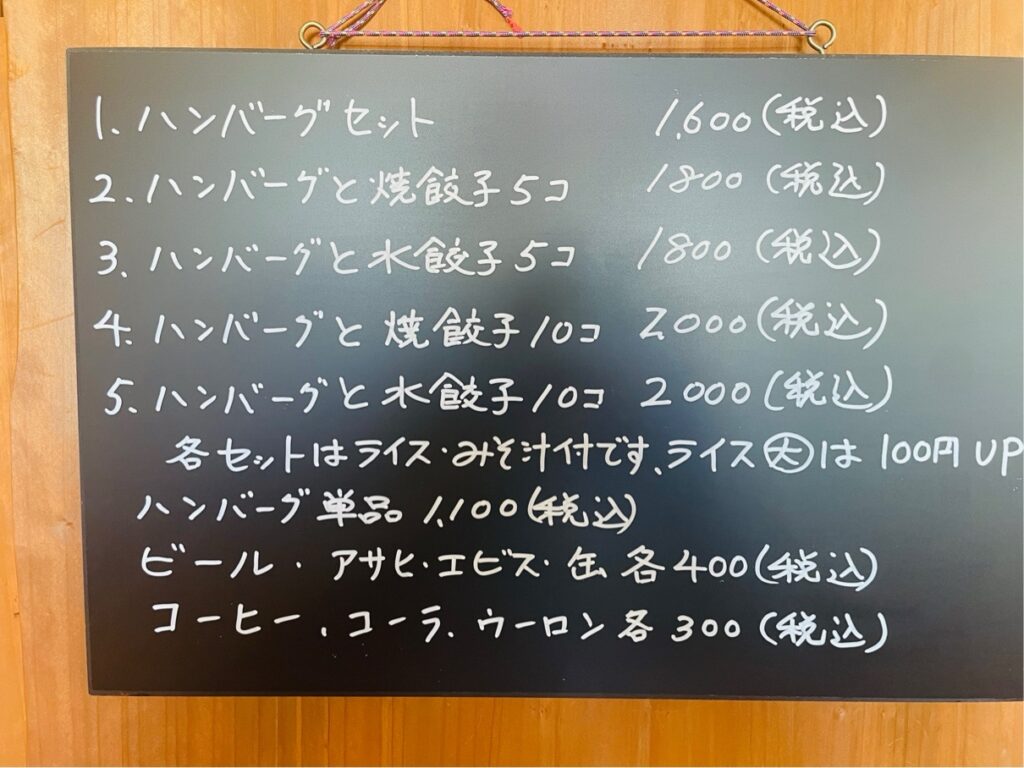 1. ハンバーグセット 1,600(税込)
2. ハンバーグと焼餃子5コ 1800(税込)
3. ハンバーグと水餃子5コ 1800(税込)
4. ハンバーグと焼餃子10コ 2,000(税込)
5. ハンバーグと水餃子10コ 2000(税込)
各セットはライス・みそ汁付です、ライス㊛は 100円UP
ハンバーグ単品 1,100(税込)
ビール・アサヒ・エビス・缶 各400(税込)
コーヒー、コーラ、ウーロン各300(税込)